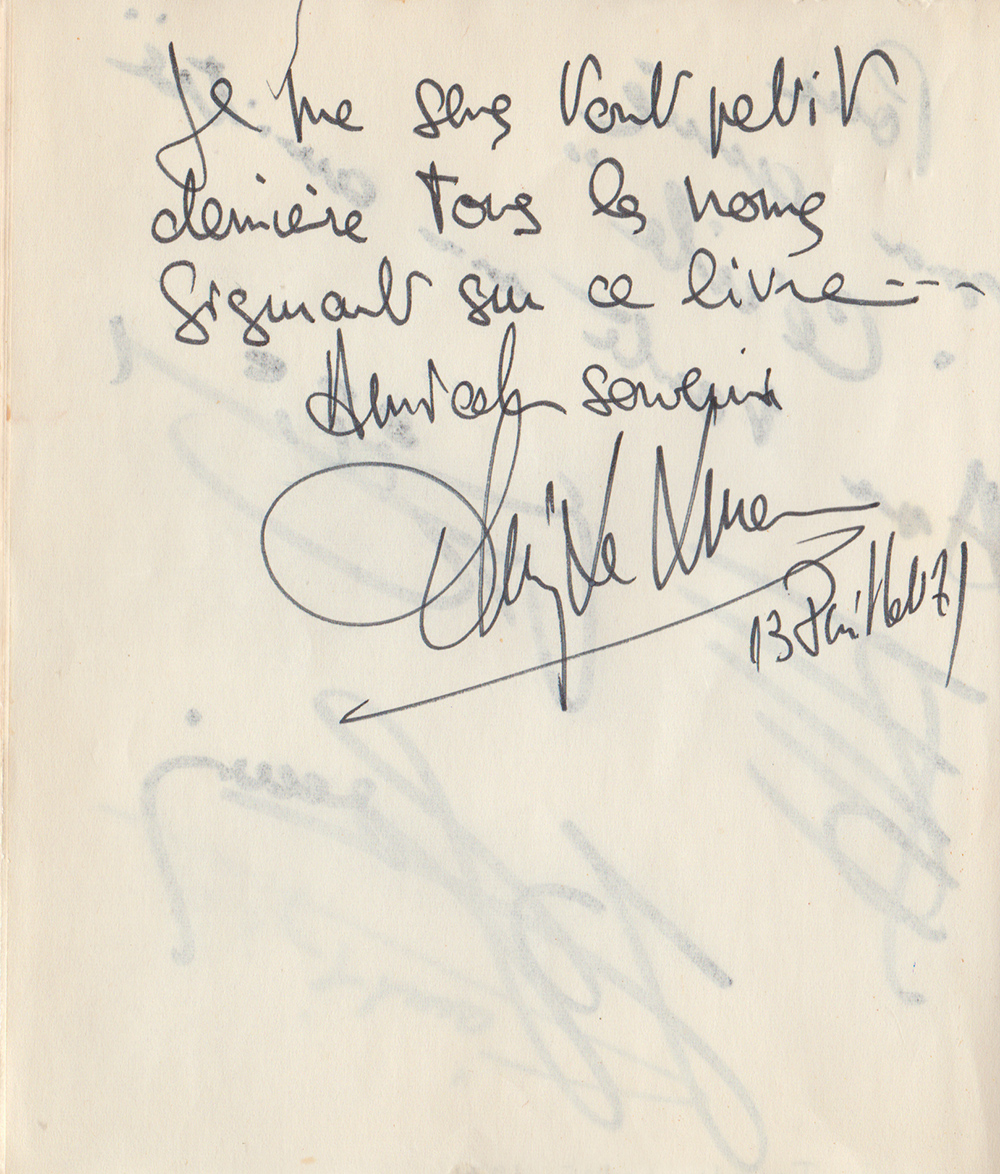 Je me sens tout petit
derrière tous les noms
signant sur ce livre ---
Amical souvenir
13 Juillet 71